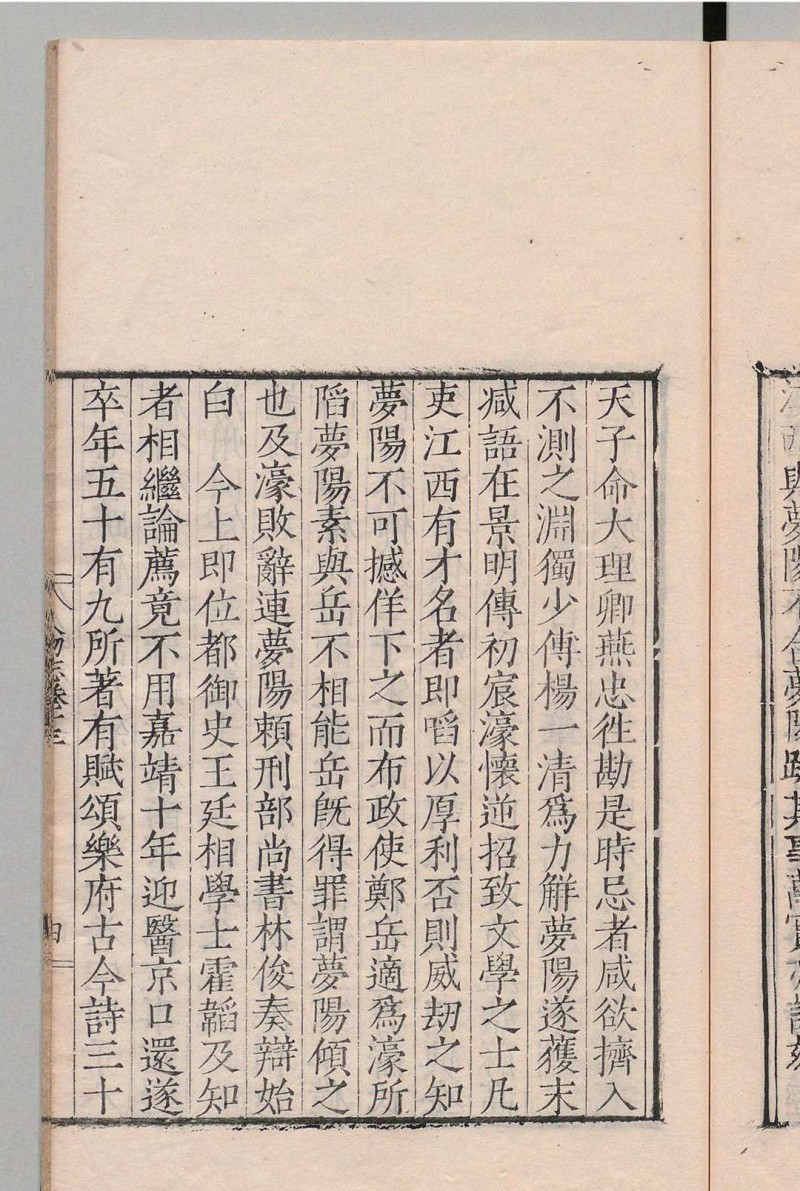 江西與夢陽不合夢陽疏其事
天子命大理卿燕忠徃勘是時忌者咸欲擠入
不測之淵獨少傅楊一清爲力觧夢陽遂獲末
减語在景明傳初宸濠懷逆招致文學之士凡
吏江西有才名者即啗以厚利否則威劫之知
夢陽不可撼佯下之而布政使鄭岳適爲濠所
䧟夢陽素與岳不相能岳旣得罪謂夢陽傾之
也及濠敗辭連夢陽頼刑部尚書林俊奏辯始
白　今上即位都御史王廷相學士霍韜及知
者相繼論薦竟不用嘉靖十年迎醫京口還遂
卒年五十有九所著有賦頌樂府古今詩三十
人物志卷十三
四